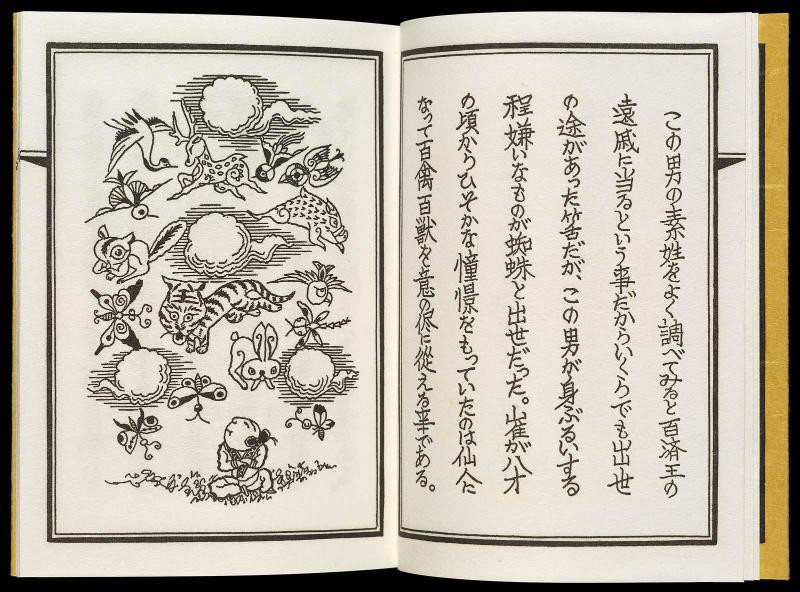 この男の素姓をよく調べてみると百済王の
遠戚に当るという事だからいくらでも出世
の途があった筈だが、この男が身ぶるいする
程嫌いなものが蜘蛛と出世だった。崔が八才
の頃からひそかな憧憬をもっていたのは仙人に
なって百禽百獣を意の侭に從える事である。